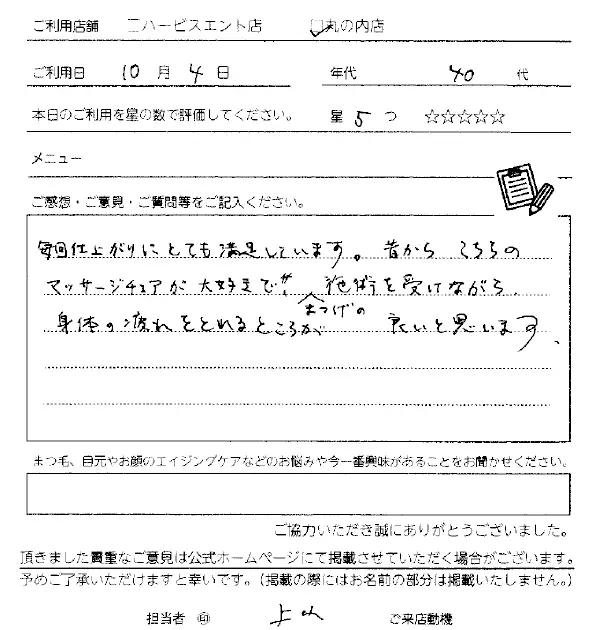 ご利用店舗 □ハービスエント店 ☑丸の内店
ご利用日 10 月 4 日 年代 40 代
本日のご利用を星の数で評価してください。 星 5 つ ☆☆☆☆☆
メニュー
ご感想・ご意見・ご質問等をご記入ください。
毎回仕上がりにとても満足しています。昔から こちらの
マッサージチェアが 大好きで!! まつげの 施術を受けながら、
身体の疲れをとれるところが 良いと思います。
まつ毛、目元やお顔のエイジングケアなどのお悩みや今一番興味があることをお聞かせください。
ご協力いただき誠にありがとうございました。
頂きました貴重なご意見は公式ホームページにて掲載させていただく場合がございます。
予めご了承いただけますと幸いです。（掲載の際にはお名前の部分は掲載いたしません。）
担当者 ㊞ ご来店動機